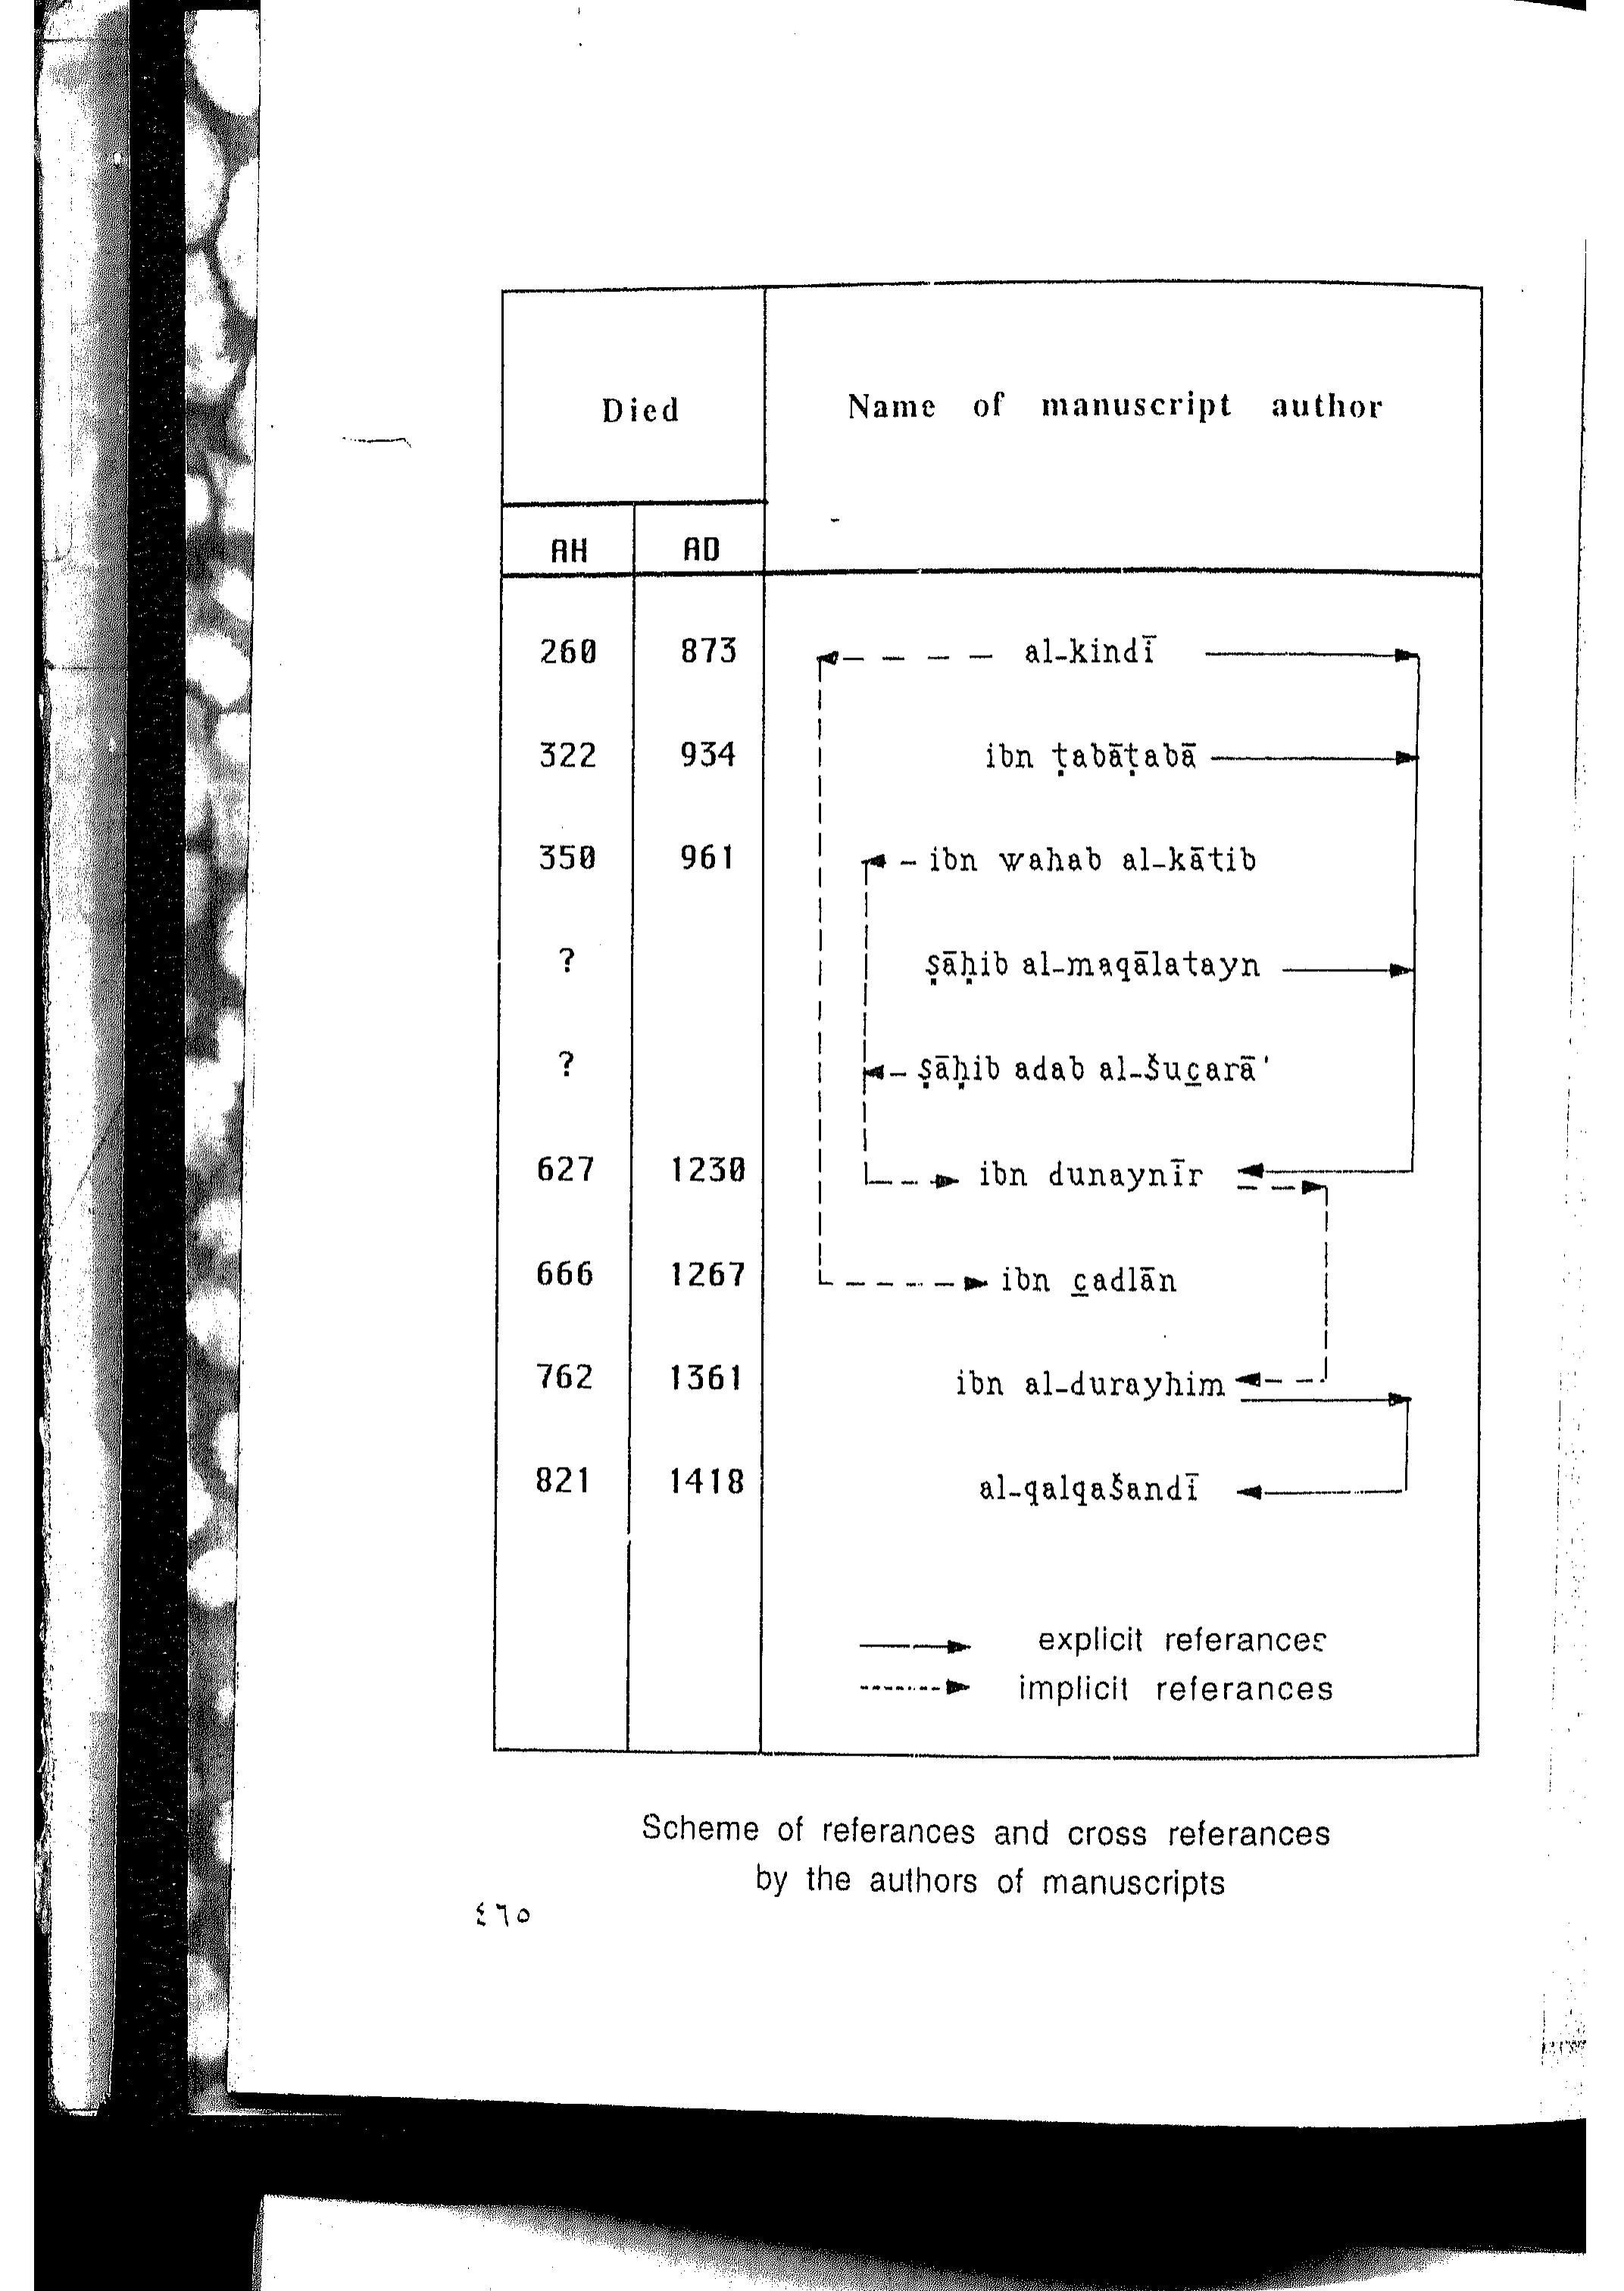 Died Name of manuscript author
AH AD
260 873 al-kindī
322 934 ibn ṭabāṭabā
350 961 ibn wahab al-kātib
? ṣāḥib al-maqālatayn
? ṣāḥib adab al-šuc̲arā'
627 1230 ibn dunaynīr
666 1267 ibn c̲adlān
762 1361 ibn al-durayhim
821 1418 al-qalqašandī
explicit referances
implicit referances
Scheme of referances and cross referances
by the authors of manuscripts
٤٦٥